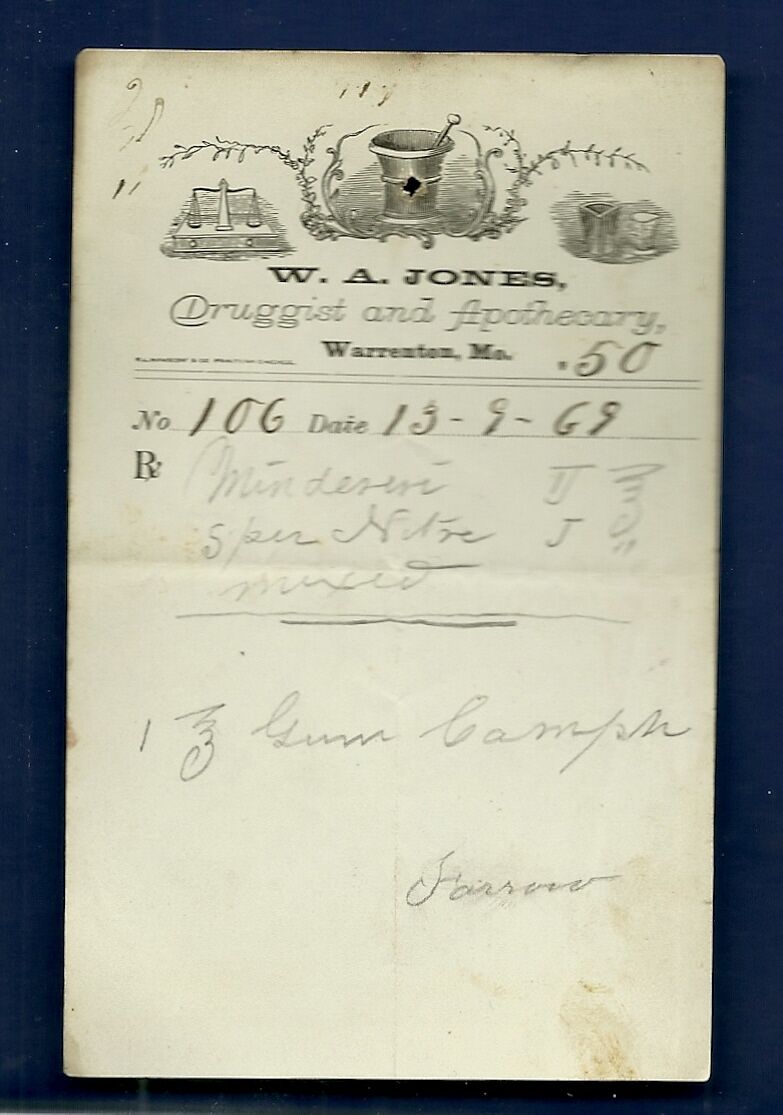 W. A. JONES,
Druggist and Apothecary,
Warrenton, Mo. .50
No 106 Date 13-9-69
℞ Mindereri II ℥
Sper Nitre I "
mixed
1 ℥ Gum Camph
Farrow